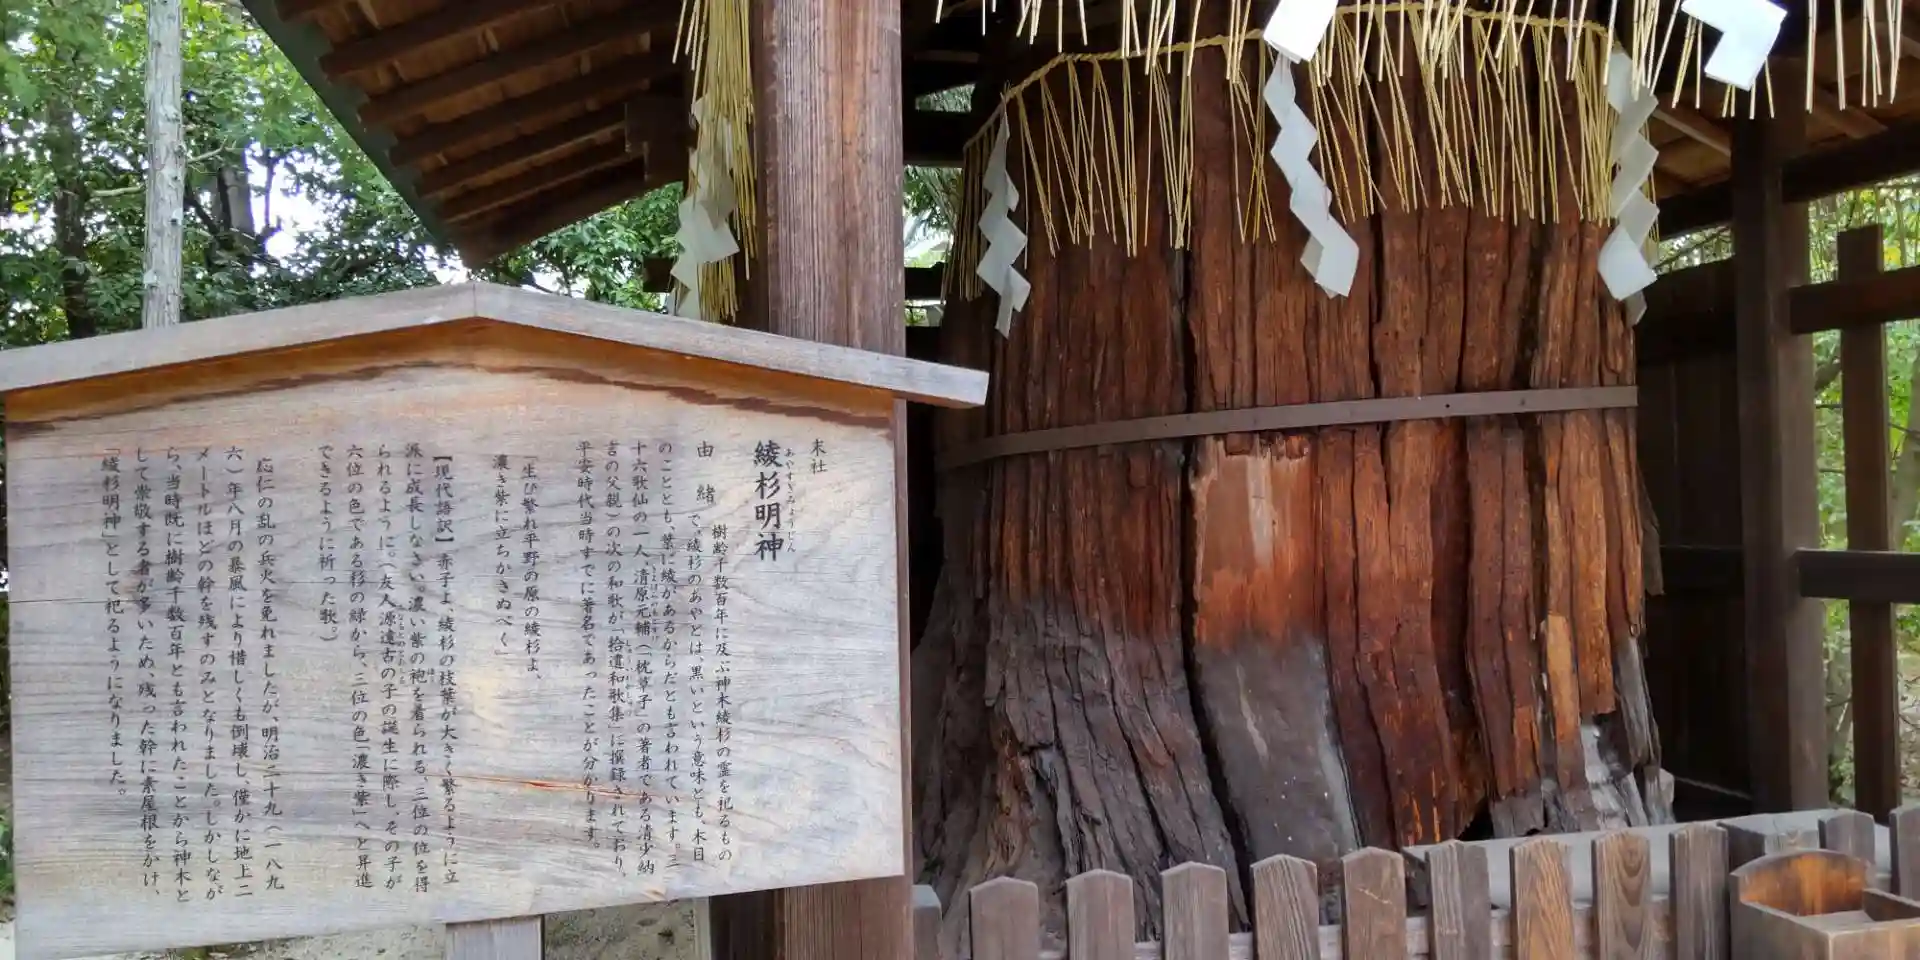 末社
綾杉明神
あやすぎみょうじん
由緒
樹齢千数百年に及ぶ神木綾杉の霊を祀るもの
で、綾杉のあやとは、黒いという意味とも、木目
のこととも、葉に綾があるからだとも言われています。三
十六歌仙の一人、清原元輔(「枕草子」の著者である清少納
きよはらのもとすけ
言の父親)の次の和歌が「拾遺和歌集」に撰録されており、
しゅういわかしゅう
平安時代当時すでに著名であったことが分かります。
「生ひ繁れ平野の原の綾杉よ、
濃き紫に立ちかさぬべく」
【現代語訳】赤子よ、綾杉の枝葉が大きく繁るように立
派に成長しなさい。濃い紫の袍を着られる、三位の位を得
ほう
られるように。(友人源遠古の子の誕生に際し、その子が
みなもとのとおふる
六位の色である杉の緑から、三位の色「濃き紫」へと昇進
できるように祈った歌。)
応仁の乱の兵火を免れましたが、明治二十九(一八九
六)年八月の暴風により惜しくも倒壊し、僅かに地上二
メートルほどの幹を残すのみとなりました。しかしなが
ら、当時既に樹齢千数百年とも言われたことから神木と
して崇敬する者が多いため、残った幹に素屋根をかけ、
「綾杉明神」として祀るようになりました。